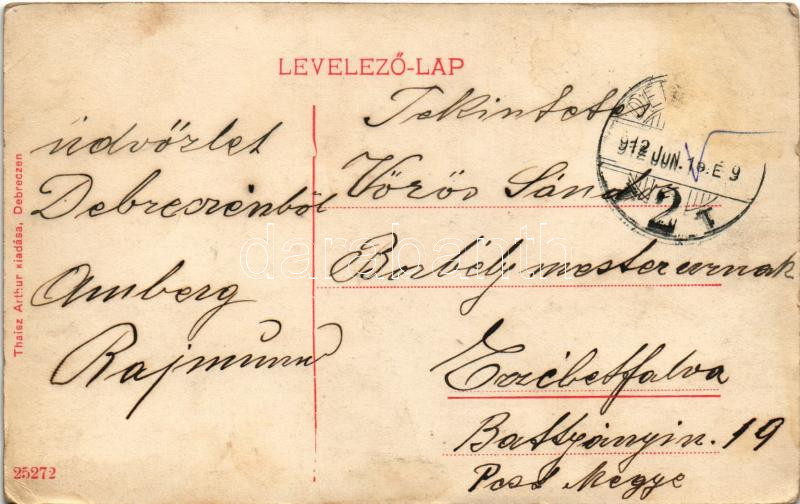 LEVELEZŐ-LAP
üdvözlet
Debreczenből
Amberg
Rajmund
Tekintetes
Vörös Sándor
Borbély mesterurnak
Erzébetfalva
Battyányin. 19
Pest Megye
912 JUN. E 9
2 T
Thaisz Arthur kiadása, Debreczen
25272
darabanth.com